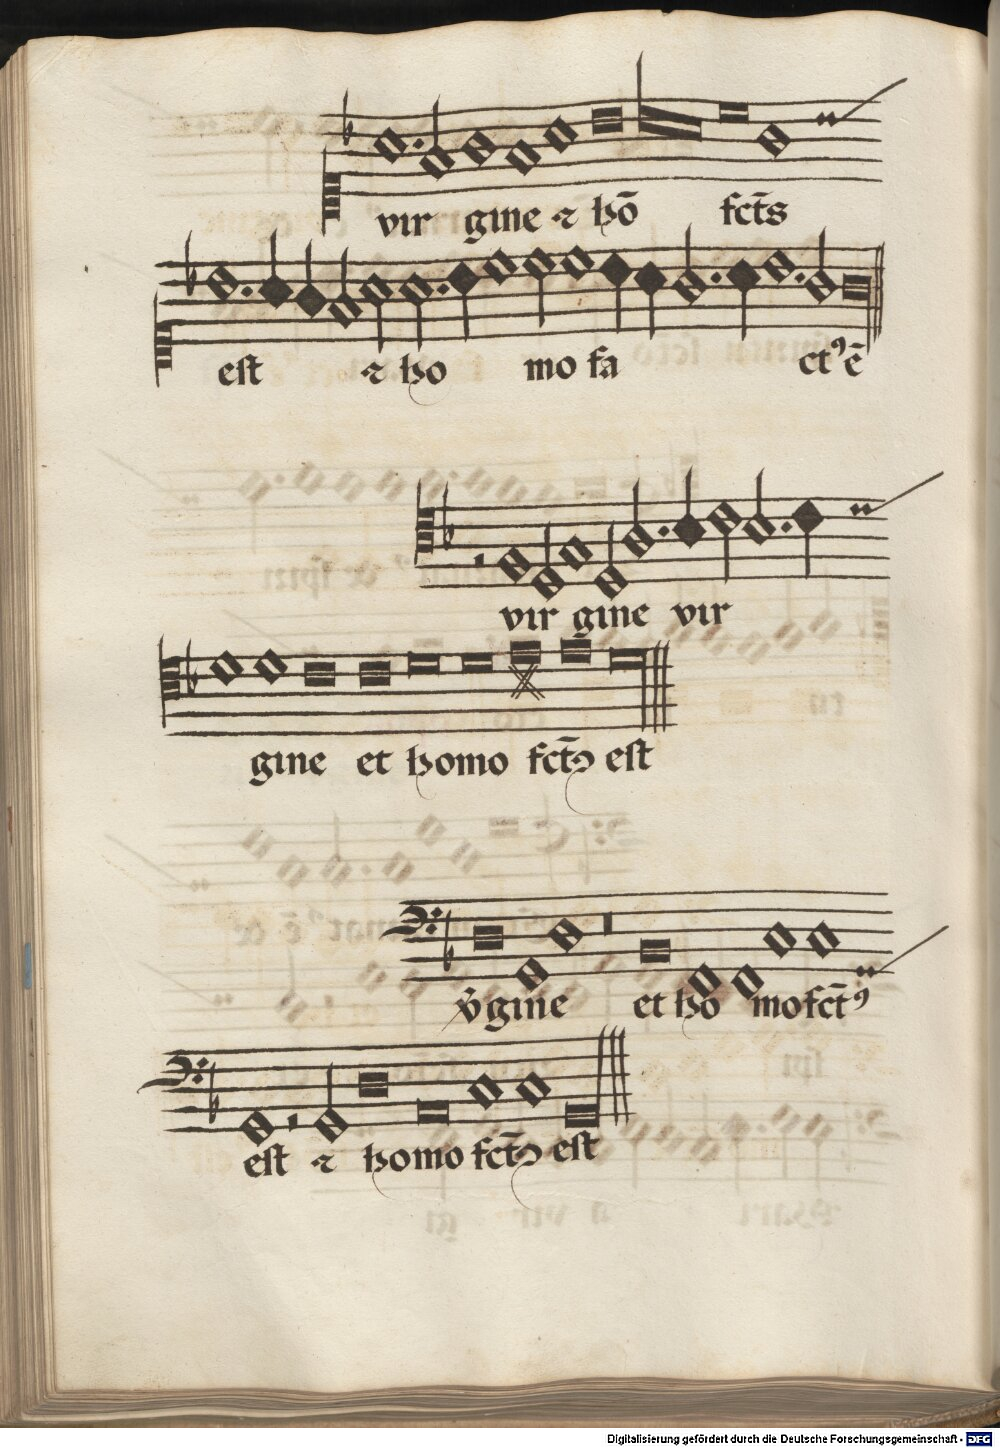 vir gine ⁊ hō fct̄s
est ⁊ ho mo fa ctꝰ ē
vir gine vir
gine et homo fct̄ꝰ est
v̄gine et ho mo fct̄ꝰ
est ⁊ homo fct̄ꝰ est
Digitalisierung gefördert durch die Deutsche Forschungsgemeinschaft - DFG